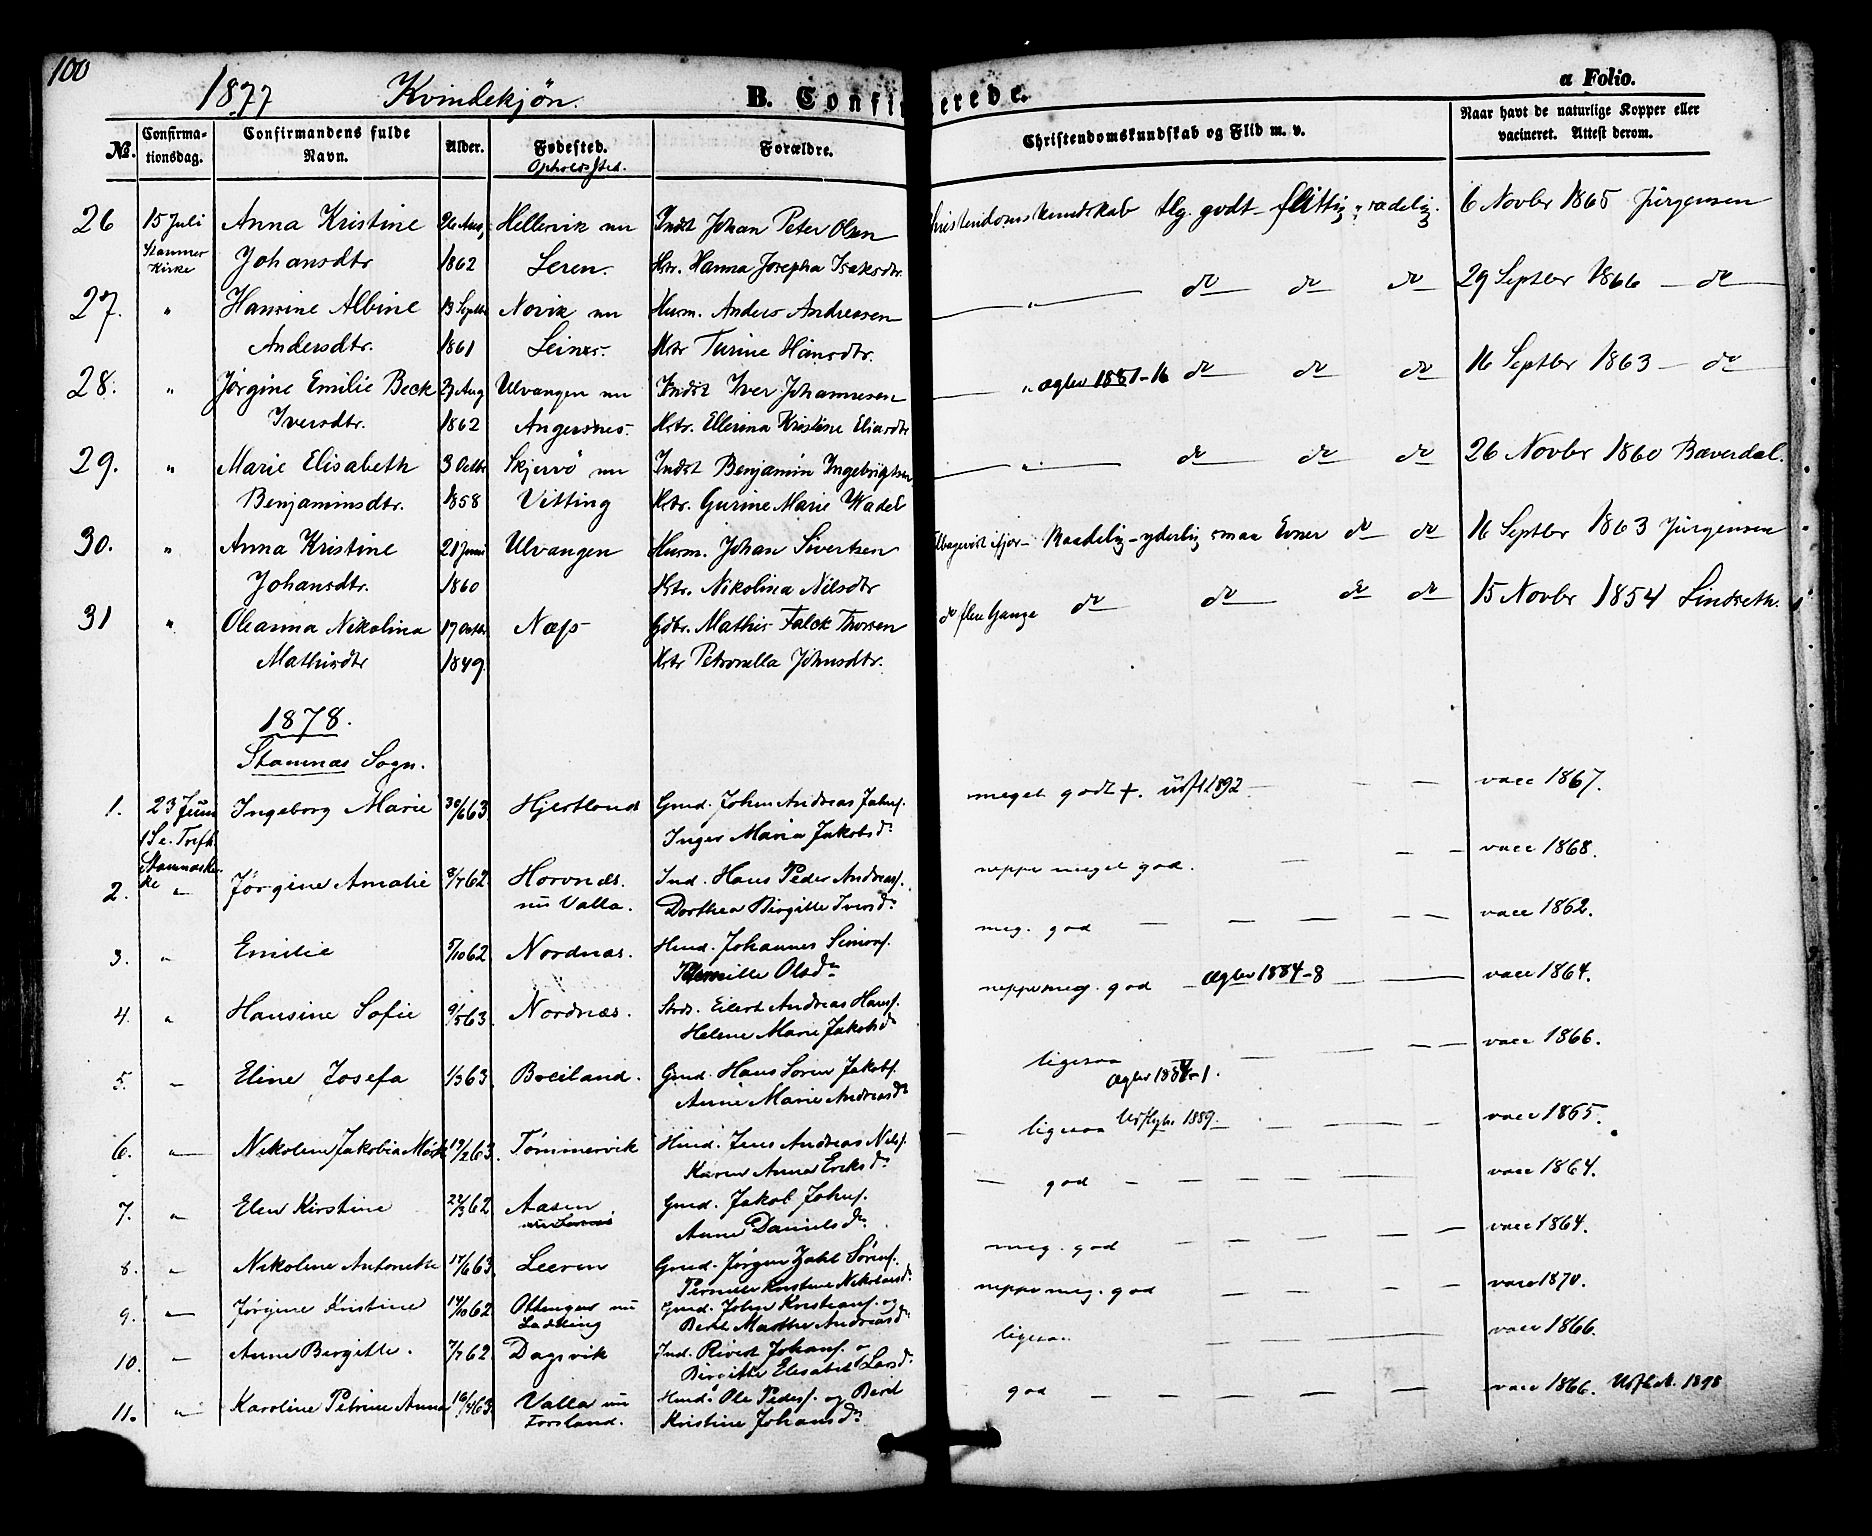 100
1877 Kvindekjøn. B. Confirmerede. a Folio.
No. Confirmationsdag. Confirmandens fulde Navn. Alder. Fødested. Opholdssted. Forældre. Christendomskundskab og Flid m. v. Naar havt de naturlige Kopper eller vacineret. Attest derom.
26 15 Juli Anna Kristine 26 Aug Hellervik nu Indst Johan Peter Olsen Kristendomskundskab tlg. godt - flittig sædelig. 6 Novbr 1865 Jürgensen
Stamnes Kirke Johansdtr 1862 Leren. Kstr. Hanna Josepha Isaksdtr.
27. " Hansine Albine 13 Septbr Novik nu Husm. Anders Andreasen " do do do 29 Septbr 1866 - do
Andersdtr. 1861 Leines. Kstr Turine Hansdtr.
28. " Jørgine Emilie Beck 23 Aug Ulvangen nu Indst Iver Johannesen " Ægtev 1881-16 do do do 16 Septbr 1863 - do
Iversdtr. 1862 Angersnes. Kstr. Ellerina Kristine Eliasdtr
29. " Marie Elisabeth 3 Octbr Skjervö nu Indst Benjamin Ingebrigtsen " do do do 26 Novbr 1860 Bæverdal.
Benjaminsdtr. 1858 Vitting Kstr. Gurine Marie Wadel
30. " Anna Kristine 21 Juni Ulvangen Husm. Johan Sivertsen Tilbagevist ifjor - Maadelig - yderlig smaa Evner do do 16 Septbr 1863 Jürgensen
Johansdtr. 1860 Kstr. Nikolina Nilsdtr
31 " Oleanna Nikolina 17 Octbr. Næss Gdbr. Mathis Falck Thorsen do flere Gange do do do do 15 Novbr 1854 Lindseth.
Mathisdtr 1849. Kstr Petronella Johnsdtr.
1878.
Stamnæs Sogn.
1. 23 Juni Ingeborg Marie 30/6 63 Hjertland Gmd. Johan Andreas Johns. meget godt +. Udfl 1892 - - - vacc 1867.
1 Se. Trefh. Inger Maria Jakobsdr
Stamnæs Kirke
2. " Jørgine Amalie 8/7 62 Hornæs. Ind. Hans Peder Andreass. neppe meget god. - - - vacc 1868.
nu Valla. Dorthea Birgitte Iversdr
3. " Emilie 5/10 62 Nordnæs. Hmd. Johannes Simons. meg. god - - - - - vacc 1862.
Pernille Olsdr
4. " Hansine Sofie 9/5 63. Nordnæs. Strds. Eilert Andreas Hans. neppe meg. god - Ægtev 1884-8 - - - vacc 1864.
Helene Marie Jakobsdr
5. - Eline Josefa 1/3 63. Breiland. Gmd. Hans Søren Jakobs. ligesaa - - - - - vacc 1866.
Anne Marie Andreasdr Ægtev 1884-1.
6. - Nikoline Jakobia Mørk 19/2 63. Tømmervik Hmd. Jens Andreas Nils. - ligesaa Udflyt. 1889. - - - - vacc 1865.
Karen Anna Eriksdr
7. " Elen Kirstine 22/3 62 Aasen Gmd. Jakob Johns. - god - - - - - vacc 1864.
Anne Danielsdr
8. " Nikoline Antonette 17/6 63. Leeren Gmd. Jørgen Zahl Sørens. meg. god - - - - - - vacc 1864.
Pernille Kristine Nikolaisdr
9. - Jørgine Kristine 14/10 62 Ottengen nu Gmd. John Kristians. og neppe meg. god - - - - vacc 1870.
Ladting Berit Marthe Andreasdr
10. - Anne Birgitte. 7/7 62. Dagsvik Ind. Sivert Johans. og ligesaa - - - vacc 1866.
Birgitte Elisabet Larsdr
11. " Karoline Petrine Anna 10/4 63. Valla nu Hmd. Ole Peders. og Berit god - - - - - - vacc 1866. Udfl.A. 1898
Forsland. Kristine Johansdr